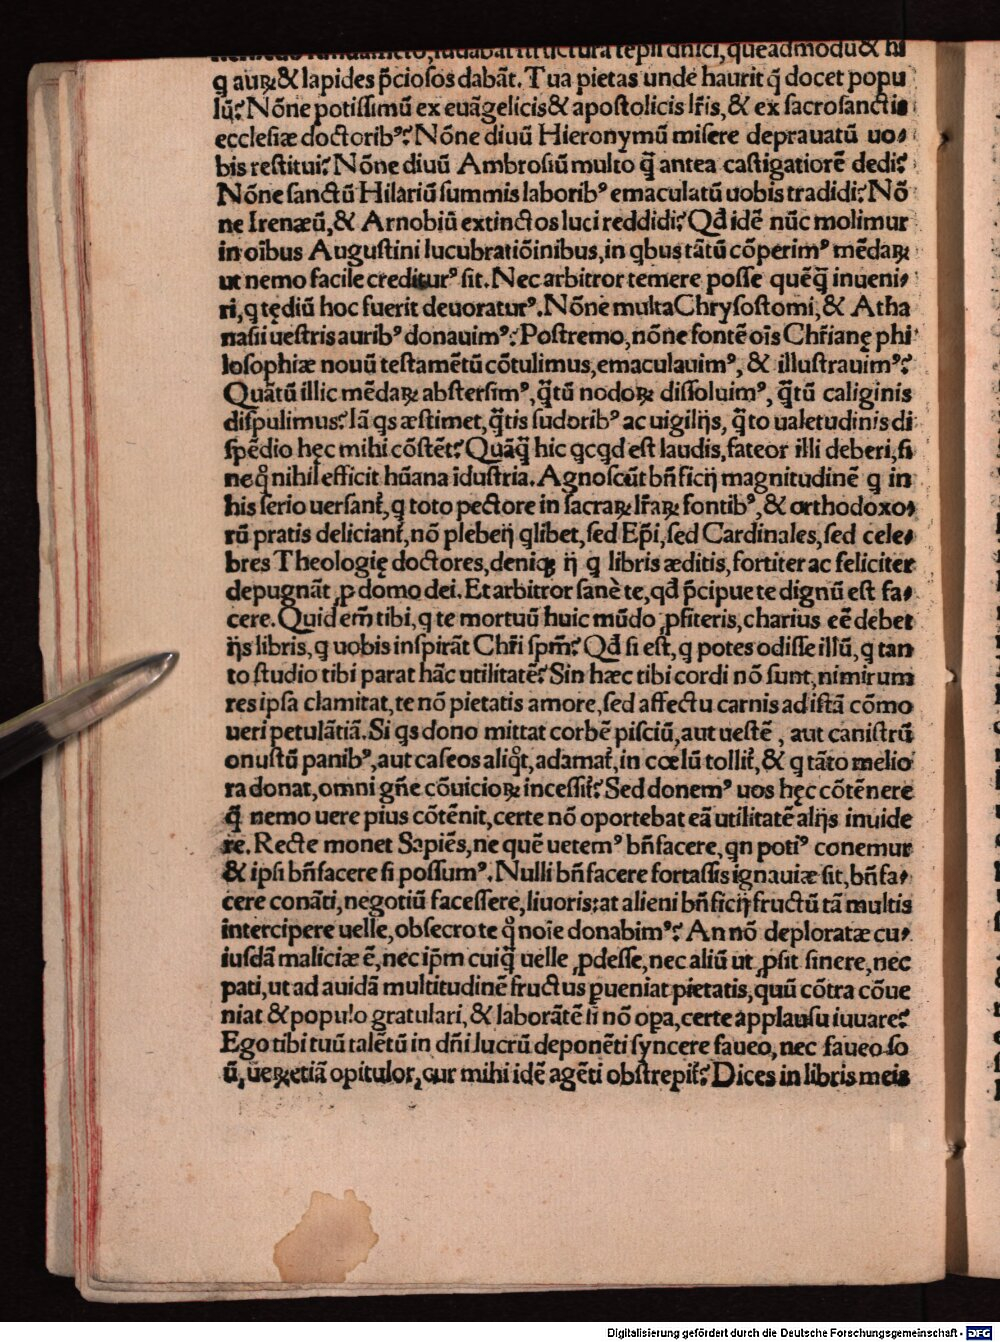 iuuabat structura tēpli dn̄ici, queadmodū & hi
q auꝝ & lapides p̄ciosos dabāt. Tua pietas unde haurit q̄ docet popu
lū? Nōne potissimū ex euāgelicis & apostolicis lr̄is, & ex sacrosanctis
ecclesiæ doctoribꝰ? Nōne diuū Hieronymū misere deprauatū uo⸗
bis restitui? Nōne diuū Ambrosiū multo q̄ antea castigatiorē dedi?
Nōne sanctū Hilariū summis laboribꝰ emaculatū uobis tradidi? Nō
ne Irenæū, & Arnobiū extinctos luci reddidi? Qd̄ idē nūc molimur
in oībus Augustini lucubratiōinibus, in qbus tātū cōperimꝰ mēdaꝝ
ut nemo facile crediturꝰ sit. Nec arbitror temere posse quēq̄ inueni⸗
ri, q tędiū hoc fuerit deuoraturꝰ. Nōne multa Chrysostomi, & Atha
nasii uestris auribꝰ donauimꝰ? Postremo, nōne fontē oīs Chr̄ianę phi
losophiæ nouū testamētū cōtulimus, emaculauimꝰ, & illustrauimꝰ?
Quātū illic mēdaꝝ abstersimꝰ, q̄tū nodoꝝ dissoluimꝰ, q̄tū caliginis
dispulimus? Iā qs æstimet, q̄tis sudoribꝰ ac uigilijs, q̄to ualetudinis di
spēdio hęc mihi cōstēt? Quāq̄ hic qcqd est laudis, fateor illi deberi, si
ne qͦ nihil efficit hūana īdustria. Agnoscūt bn̄ficij magnitudinē q in
his serio uersant᷑, q toto pectore in sacraꝝ lr̄aꝝ fontibꝰ, & orthodoxo⸗
rū pratis deliciant᷑, nō plebeij qlibet, sed Ep̄i, sed Cardinales, sed cele⸗
bres Theologię doctores, deniqꝫ ij q libris æditis, fortiter ac feliciter
depugnāt ꝓ domo dei. Et arbitror sanè te, qd̄ p̄cipue te dignū est fa⸗
cere. Quid em̄ tibi, q te mortuū huic mūdo ꝓfiteris, charius eē debet
ijs libris, q uobis inspirāt Chr̄i sp̄m? Qd̄ si est, q potes odisse illū, q tan
to studio tibi parat hāc utilitatē? Sin hæc tibi cordi nō sunt, nimirum
res ipsa clamitat, te nō pietatis amore, sed affectu carnis ad istā cōmo
ueri petulātiā. Si qs dono mittat corbē pisciū, aut uestē, aut canistrū
onustū panibꝰ, aut caseos aliqͦt, adamat᷑, in cœlū tollit᷑, & q tāto melio
ra donat, omni gn̄e cōuicioꝝ incessit᷑? Sed donemꝰ uos hęc cōtēnere
q̄ nemo uere pius cōtēnit, certe nō oportebat eā utilitatē alijs inuide
re. Recte monet Sapiēs, ne quē uetemꝰ bn̄facere, qn potiꝰ conemur
& ipsi bn̄facere si possumꝰ. Nulli bn̄facere fortassis ignauiæ sit, bn̄fa⸗
cere conāti, negotiū facessere, liuoris: at alieni bn̄ficij fructū tā multis
intercipere uelle, obsecro te qͦ noīe donabimꝰ? An nō deploratæ cu⸗
iusdā maliciæ ē, nec ip̄m cuiq̄ uelle ꝓdesse, nec aliū ut ꝓsit sinere, nec
pati, ut ad auidā multitudinē fructus ꝑueniat pietatis, quū cōtra cōue
niat & populo gratulari, & laborātē si nō opa, certe applausu iuuare?
Ego tibi tuū talētū in dn̄i lucrū deponēti syncere faueo, nec faueo so
ū, ueꝝ etiā opitulor, cur mihi idē agēti obstrepit᷑? Dices in libris meis
Digitalisierung gefördert durch die Deutsche Forschungsgemeinschaft - DFG